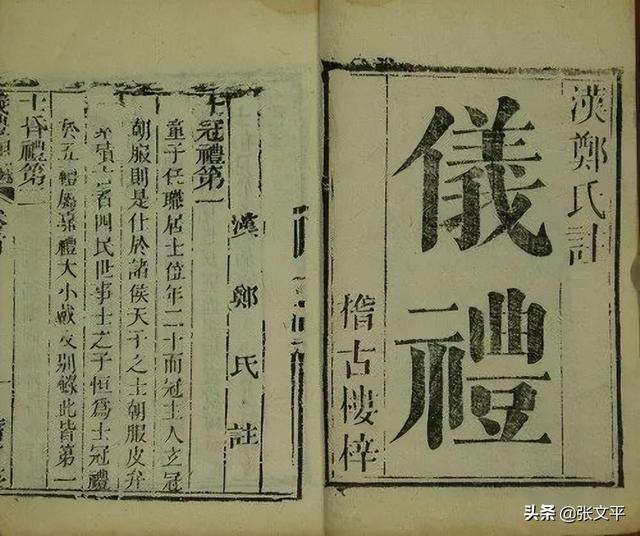 漢鄭氏註
儀禮
稽古樓梓
漢鄭氏註
士冠禮第一
童子任職居士位年二十而冠主人玄冠
朝服則是仕於諸侯天子之士朝服皮弁
素積古者四民世事士之子恒為士冠禮
於五禮屬嘉禮大小戴及別錄此皆第一
士昏禮第二
头条 @张文平